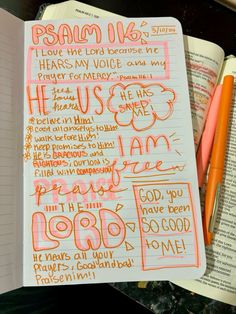 PSALM 116
"I Love the Lord because he
HEARS MY VOICE and my
Prayer for MERCY." -Psalm 116:1
HE feeds US
loves
hears
HE HAS
SAVED
ME
believe in Him!
cast all anxietys to Him!
walk before Him!
keep promises to Him!
He is GRACIOUS and
RIGHTOUS, our Lord is
filled with compassion
I AM
free
praise
THE
LORD
GOD, you
have been
SO GOOD
to ME!
He hears all your
prayers, Good and bad!
Praise him!!